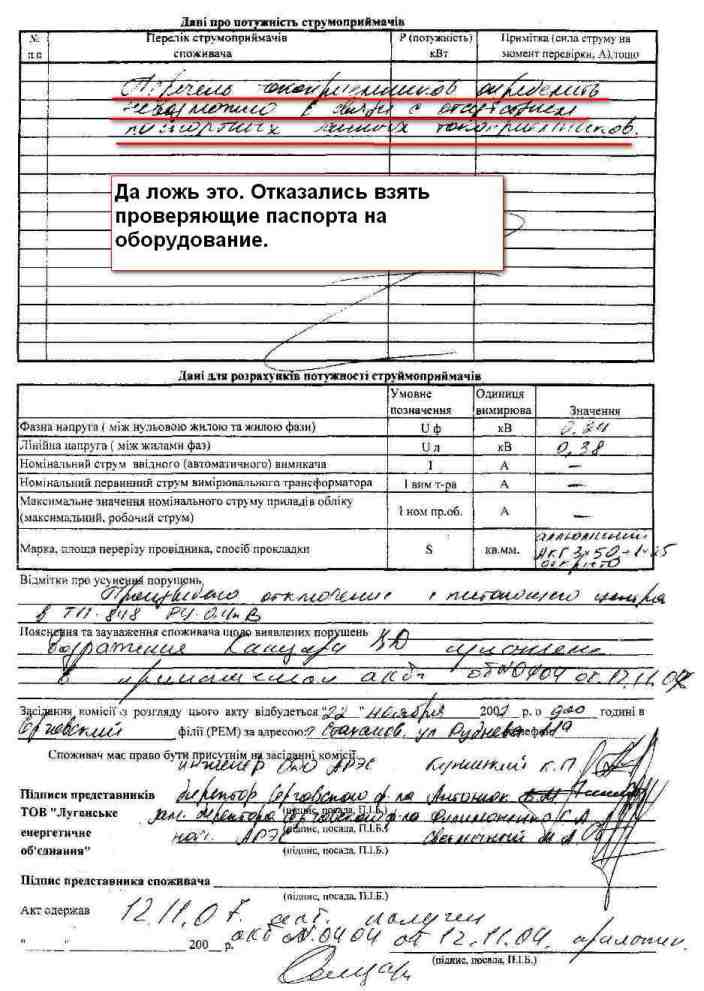 Дані про потужність струмоприймачів
№ п п
Перелік струмоприймачів споживача
Р (потужність) кВт
Примітка (сила струму на момент перевірки, А), тощо
Перечень токоприемников определить
невозможно в связи с отсутствием
паспортных данных токоприемников.
Да ложь это. Отказались взять
проверяющие паспорта на
оборудование.
Дані для розрахунків потужності струймоприймачів
Умовне позначення
Одиниця вимирюва
Значення
Фазна напруга ( між нульовою жилою та жилою фази) U ф кВ
Лінійна напруга ( між жилами фаз) U л кВ 0,38
Номінальний струм ввідного (автоматичного) вимикача I А —
Номінальний первинний струм вимірювального трансформатора І вим т-ра А —
Максимальне значення номінального струму приладів обліку
(максимальний, робочий струм) І ном пр.об. А —
Марка, площа перерізу провідника, спосіб прокладки S кв.мм.
открыто
Відмітки про усунення порушень
Произведено отключение с питающего центра
в ТП-848 РУ-0,4кВ
Пояснення та зауваження споживача щодо виявлених порушень
возражения
Засідання комісії з розгляду цього акту відбудеться "22" ноября 200 р. о 9 00 годині в
філії (РЕМ) за адресою: г Стаханов, ул Руднева
Споживач має право бути присутнім на засіданні комісії
инженер АРЭС К.П
Підписи представників
ТОВ "Луганське
енергетичне
об'єднання"
директор ф-ла Антонюк
(підпис, посада, П.І.Б.)
зам. директора ф-ла
(підпис, посада, П.І.Б.)
нач. АРЭС
(підпис, посада, П.І.Б.)
Підпис представника споживача
(підпис, посада, П.І.Б.)
Акт одержав
12.11.07. акт получен
" " 200 р.
акт №0404 от 12.11.07.
(підпис, посада, П.І.Б.)